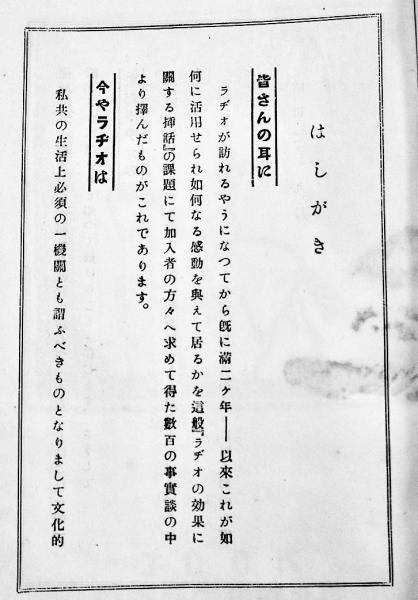 はしがき
皆さんの耳に
ラヂオが訪れるやうになつてから既に滿二ヶ年――以來これが如
何に活用せられ如何なる感動を與えて居るかを這般『ラヂオの効果に
關する挿話』の課題にて加入者の方々へ求めて得た數百の事實談の中
より擇んだものがこれであります。
今やラヂオは
私共の生活上必須の一機關とも謂ふべきものとなりまして文化的